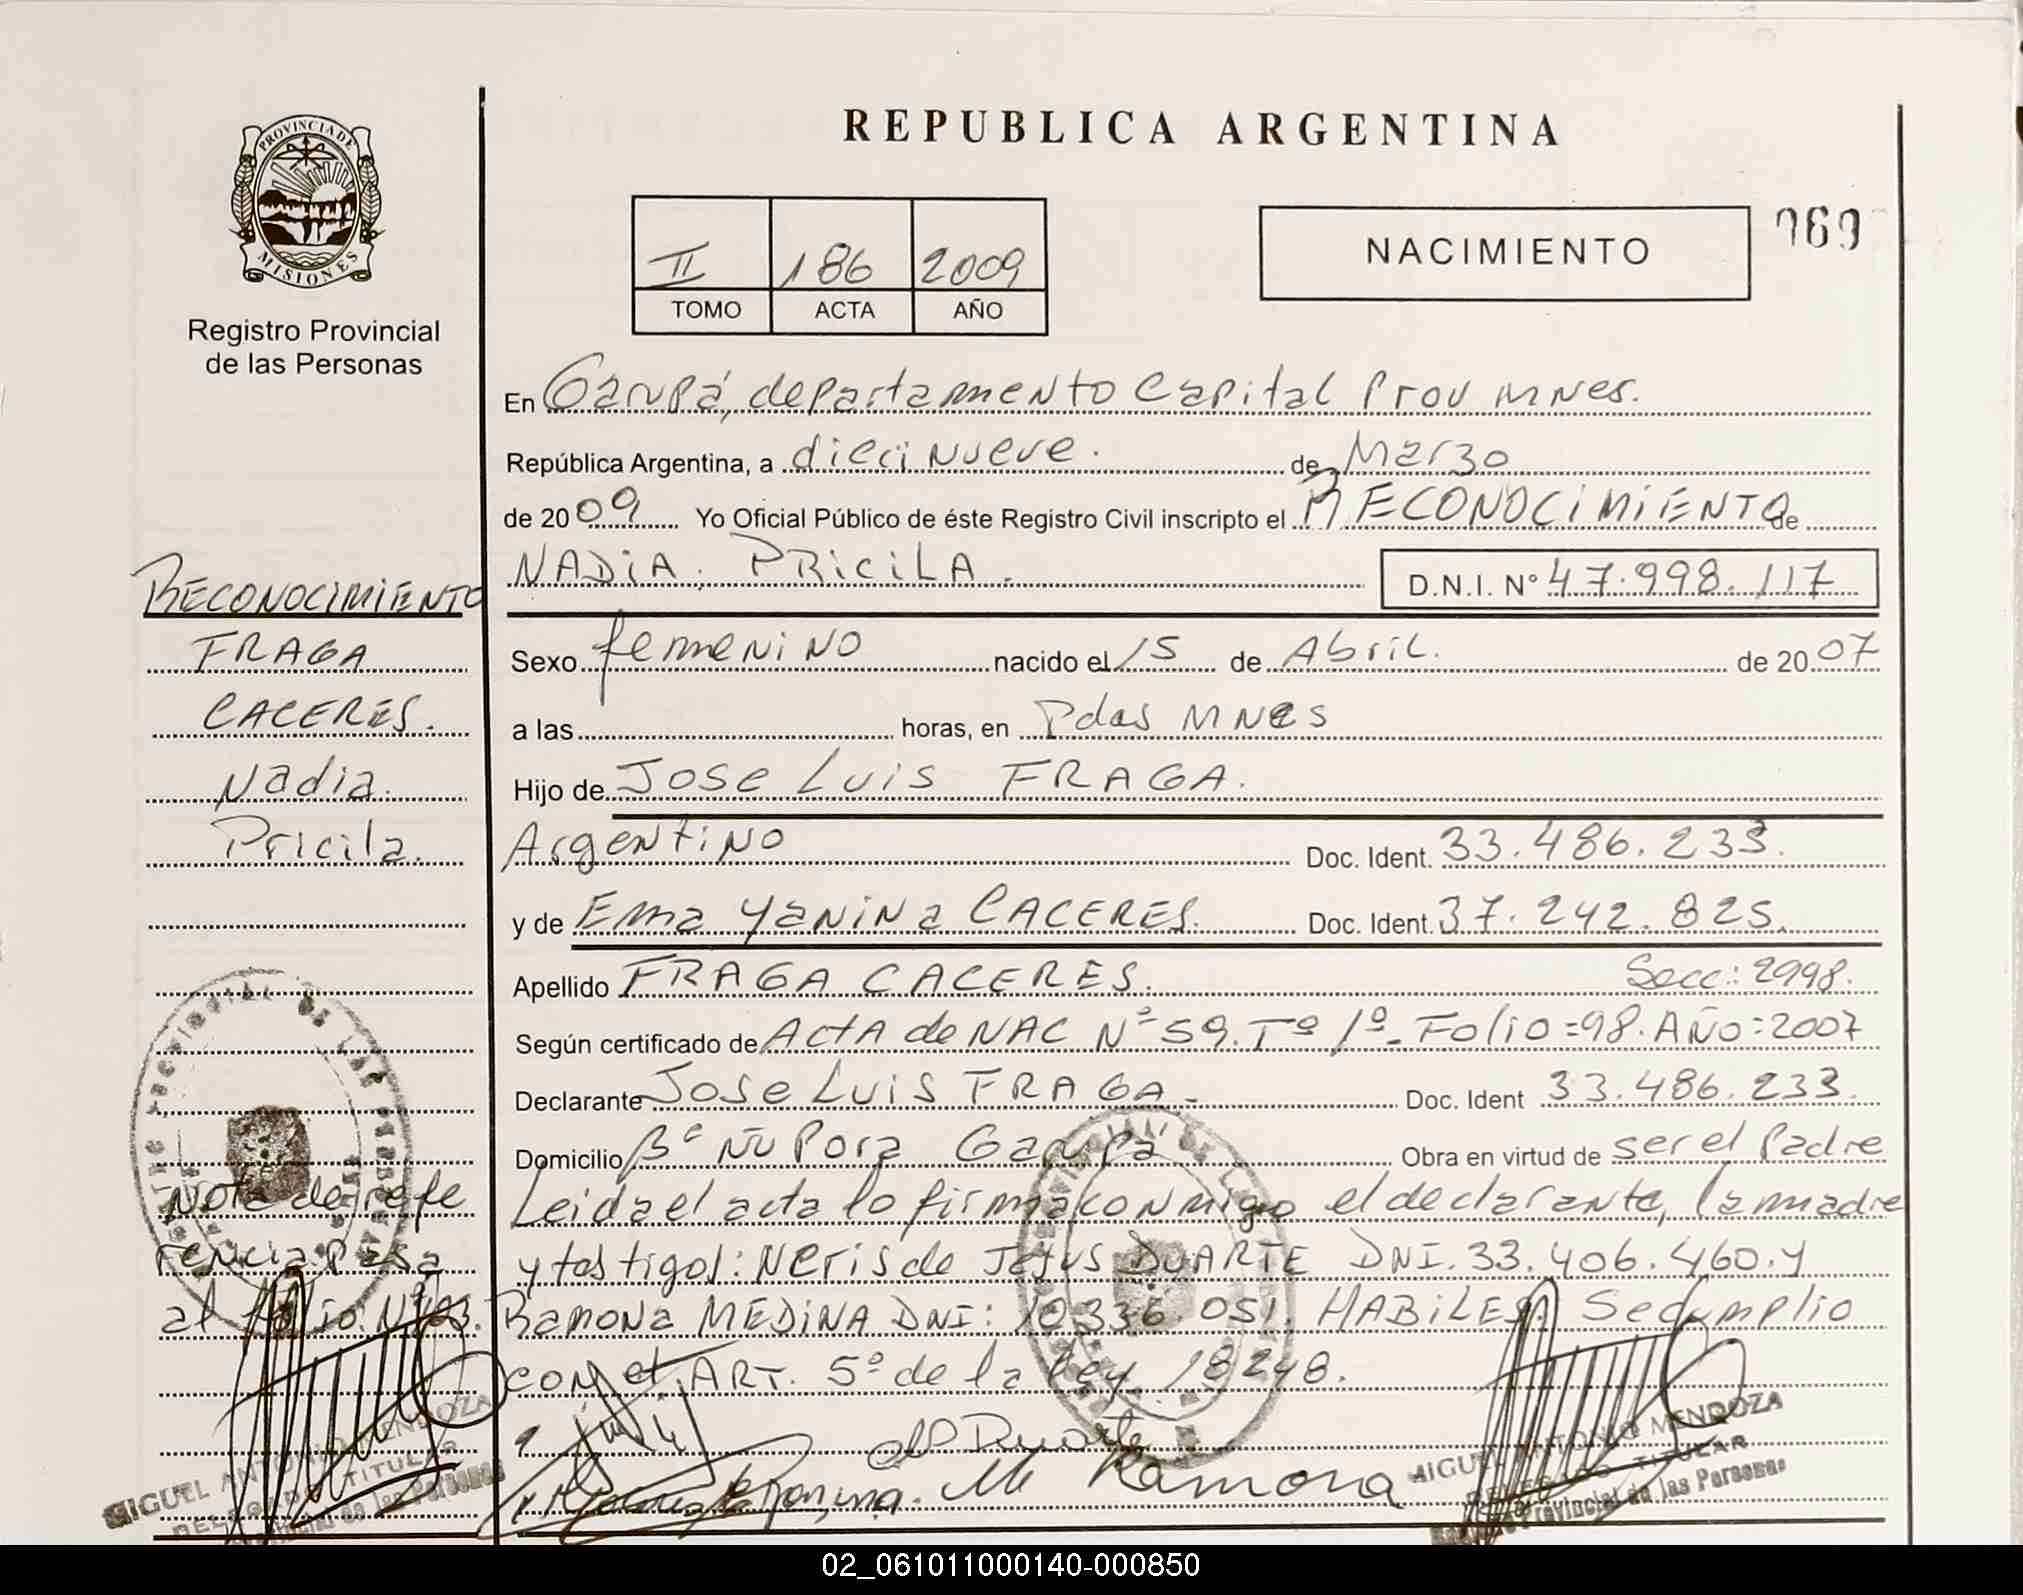 REPUBLICA ARGENTINA
PROVINCIA DE
MISIONES
Registro Provincial
de las Personas
II 186 2009
TOMO ACTA AÑO
NACIMIENTO
069
En Garupá, departamento Capital Prov Mnes.
República Argentina, a dieci nueve. de Marzo
de 2009 Yo Oficial Público de éste Registro Civil inscripto el RECONOCIMIENTO de
NADIA. PRICILA. D.N.I. Nº 47.998.117
RECONOCIMIENTO
FRAGA
CACERES.
Nadia.
Pricila.
Sexo femenino nacido el 15 de Abril. de 2007
a las horas, en Pdas MNes
Hijo de Jose Luis FRAGA.
Argentino Doc. Ident. 33.486.233.
y de Ema Yanina CACERES. Doc. Ident. 37.242.825.
Apellido FRAGA CACERES. Secc: 2998.
Según certificado de Acta de NAC Nº 59. Tº 1º - Folio = 98. AÑO: 2007
Declarante Jose Luis FRAGA - Doc. Ident 33.486.233.
Domicilio Bº Ñu Pora Garupa Obra en virtud de ser el Padre
Leida el acta lo firma conmigo el declarante, la madre
y testigos: Neris de Jesus DUARTE DNI. 33.406.460. y
Ramona MEDINA DNI: 10.336.051. HABILES. Se cumplio
con el ART. 5º de la ley 18248.
Nota de refe
rencia pasa
al folio: Nº
Duarte
M Ramona
MIGUEL ANTONIO MENDOZA
DELEGADO TITULAR
Provincial de las Personas
MIGUEL ANTONIO MENDOZA
DELEGADO TITULAR
Provincial de las Personas
02_061011000140-000850